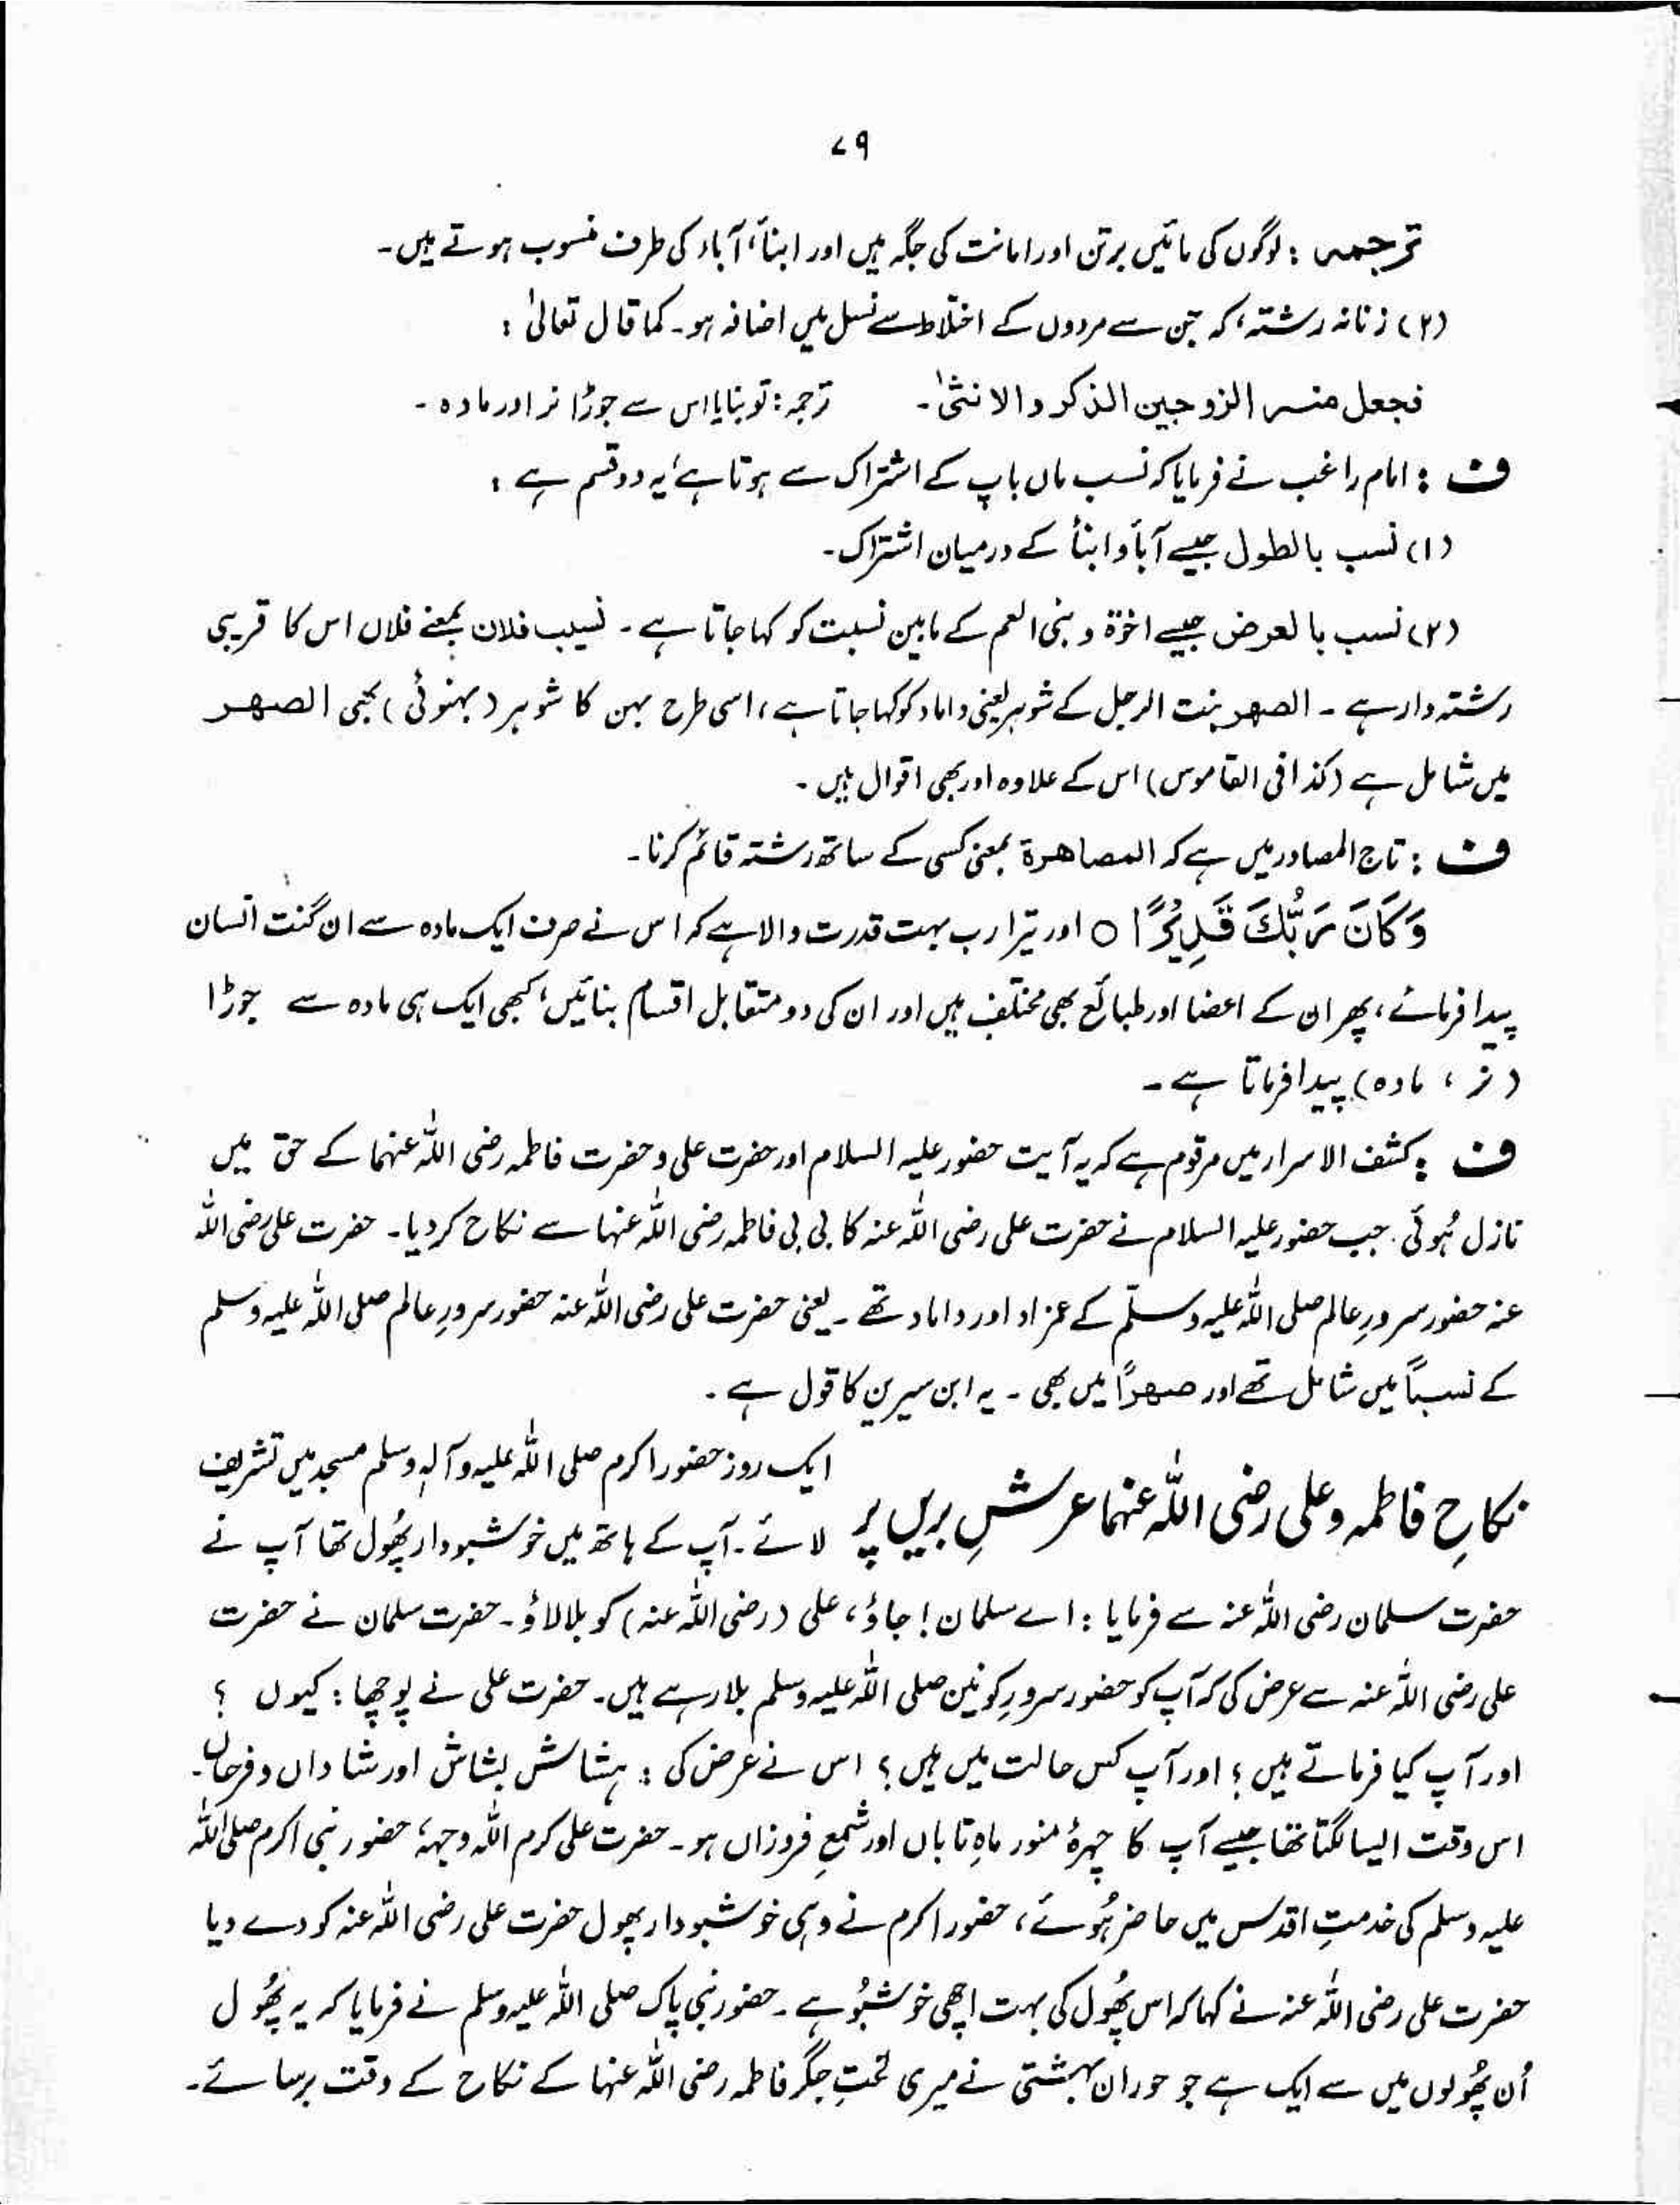 ۷۹
ترجمہ : لوگوں کی مائیں برتن اور امانت کی جگہ ہیں اور ابنأ، آباء کی طرف منسوب ہوتے ہیں۔
(۲) زنانہ رشتہ، کہ جن سے مردوں کے اختلاط سے نسل میں اضافہ ہو۔ کما قال تعالیٰ :
فجعل منہ الزوجین الذکر والانثیٰ۔ ترجمہ : تو بنایا اس سے جوڑا نر اور مادہ ۔
ف : امام راغب نے فرمایا کہ نسب ماں باپ کے اشتراک سے ہوتا ہے، یہ دو قسم ہے :
(۱) نسب بالطول جیسے آبأ و ابنأ کے درمیان اشتراک۔
(۲) نسب بالعرض جیسے اخوۃ و بنی العم کے مابین نسبت کو کہا جاتا ہے ۔ نسیب فلان بمعنے فلاں اس کا قریبی
رشتہ دار ہے ۔ الصھر بنت الرجل کے شوہر یعنی داماد کو کہا جاتا ہے، اسی طرح بہن کا شوہر (بہنوئی) بھی الصھر
میں شامل ہے (کذا فی القاموس) اس کے علاوہ اور بھی اقوال ہیں ۔
ف : تاج المصادر میں ہے کہ المصاھرۃ بمعنی کسی کے ساتھ رشتہ قائم کرنا۔
وَكَانَ رَبُّكَ قَدِيْرًا ○ اور تیرا رب بہت قدرت والا ہے کہ اس نے صرف ایک مادہ سے ان گنت انسان
پیدا فرمائے، پھر ان کے اعضا اور طبائع بھی مختلف ہیں اور ان کی دو متقابل اقسام بنائیں، کبھی ایک ہی مادہ سے جوڑا
(نر ، مادہ) پیدا فرماتا ہے ۔
ف : کشف الاسرار میں مرقوم ہے کہ یہ آیت حضور علیہ السلام اور حضرت علی و حضرت فاطمہ رضی اللہ عنہما کے حق میں
نازل ہُوئی ۔ جب حضور علیہ السلام نے حضرت علی رضی اللہ عنہ کا بی بی فاطمہ رضی اللہ عنہا سے نکاح کر دیا۔ حضرت علی رضی اللہ
عنہ حضور سرورِ عالم صلی اللہ علیہ وسلّم کے عمزاد اور داماد تھے ۔ یعنی حضرت علی رضی اللہ عنہ حضور سرورِ عالم صلی اللہ علیہ وسلم
کے نسباً میں شامل تھے اور صھراً میں بھی ۔ یہ ابن سیرین کا قول ہے ۔
نکاحِ فاطمہ و علی رضی اللہ عنہما عرشِ بریں پر
ایک روز حضور اکرم صلی اللہ علیہ وآلہٖ وسلم مسجد میں تشریف
لائے ۔ آپ کے ہاتھ میں خوشبودار پھُول تھا آپ نے
حضرت سلمان رضی اللہ عنہ سے فرمایا : اے سلمان ! جاؤ، علی (رضی اللہ عنہ) کو بلا لاؤ ۔ حضرت سلمان نے حضرت
علی رضی اللہ عنہ سے عرض کی کہ آپ کو حضور سرورِ کونین صلی اللہ علیہ وسلم بلا رہے ہیں۔ حضرت علی نے پوچھا : کیوں ؟
اور آپ کیا فرماتے ہیں ؛ اور آپ کس حالت میں ہیں ؟ اس نے عرض کی : ہشاش بشاش اور شاداں و فرحاں۔
اس وقت ایسا لگتا تھا جیسے آپ کا چہرۂ منور ماہِ تاباں اور شمعِ فروزاں ہو ۔ حضرت علی کرم اللہ وجہہٗ، حضور نبی اکرم صلی اللہ
علیہ وسلم کی خدمتِ اقدس میں حاضر ہُوئے، حضور اکرم نے وہی خوشبودار پھول حضرت علی رضی اللہ عنہ کو دے دیا
حضرت علی رضی اللہ عنہ نے کہا کہ اس پھُول کی بہت اچھی خوشبُو ہے ۔ حضور نبی پاک صلی اللہ علیہ وسلم نے فرمایا کہ یہ پھُول
اُن پھُولوں میں سے ایک ہے جو حوران بہشتی نے میری لختِ جگر فاطمہ رضی اللہ عنہا کے نکاح کے وقت برسائے۔